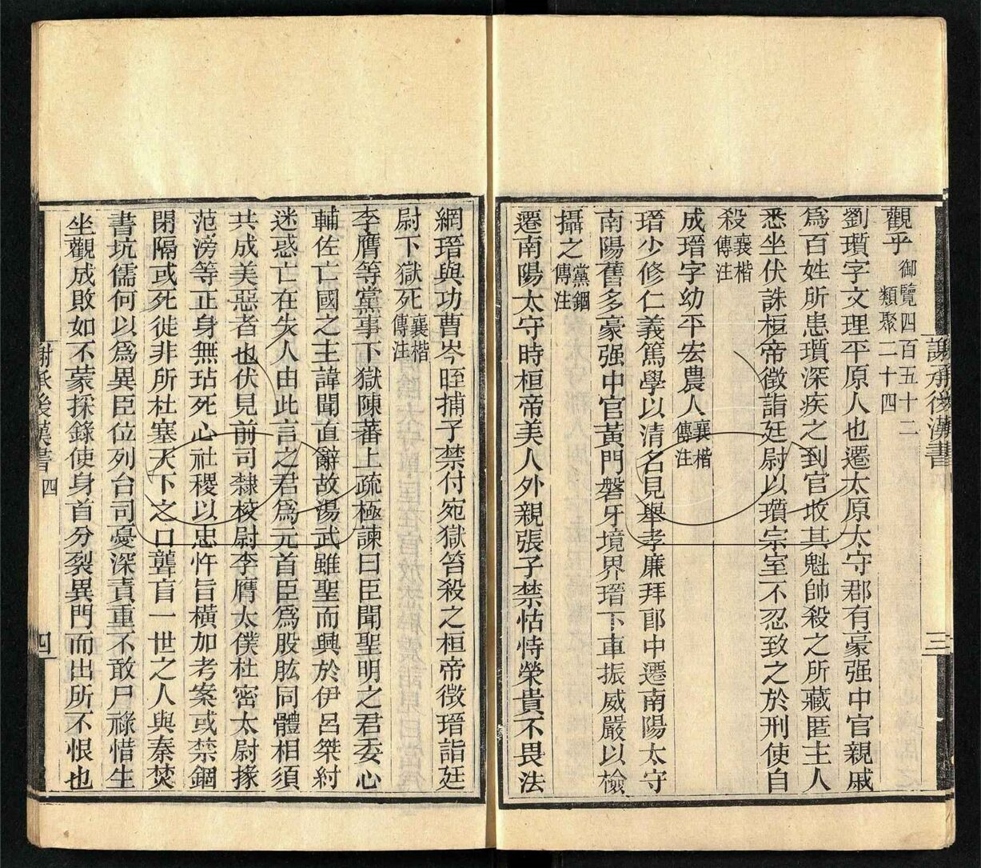 觀乎御覽四百五十二類聚二十四
劉瓆字文理平原人也遷太原太守郡有豪强中官親戚
爲百姓所患瓆深疾之到官收其魁帥殺之所藏匿主人
悉坐伏誅桓帝徵詣廷尉以瓆宗室不忍致之於刑使自
殺襄楷傳注
成瑨字幼平宏農人襄楷傳注
瑨少修仁義篤學以清名見舉孝廉拜郎中遷南陽太守
南陽舊多豪强中官黃門磐牙境界瑨下車振威嚴以檢
攝之黨錮傳注
遷南陽太守時桓帝美人外親張子禁怙恃榮貴不畏法
謝承後漢書四
三
網瑨與功曹岑晊捕子禁付宛獄笞殺之桓帝徵瑨詣廷
尉下獄死襄楷傳注
李膺等黨事下獄陳蕃上疏極諫曰臣聞聖明之君委心
輔佐亡國之主諱聞直辭故湯武雖聖而興於伊呂桀紂
迷惑亡在失人由此言之君爲元首臣爲股肱同體相須
共成美惡者也伏見前司隸校尉李膺太僕杜密太尉掾
范滂等正身無玷死心社稷以忠忤旨橫加考案或禁錮
閉隔或死徙非所杜塞天下之口聾盲一世之人與秦焚
書坑儒何以爲異臣位列台司憂深責重不敢尸祿惜生
坐觀成敗如不蒙採錄使身首分裂異門而出所不恨也
謝承後漢書四
四